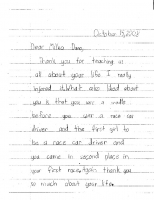 October 15, 2003
Dear Milka Duno,
Thank you for teaching us
all about your life. I really
injored it. What also liked about
you is that you were a
before you were a race car
driver and the first girl to
be a race car driver and
you came in second place in
your first race. Again thank you
so much about your life.